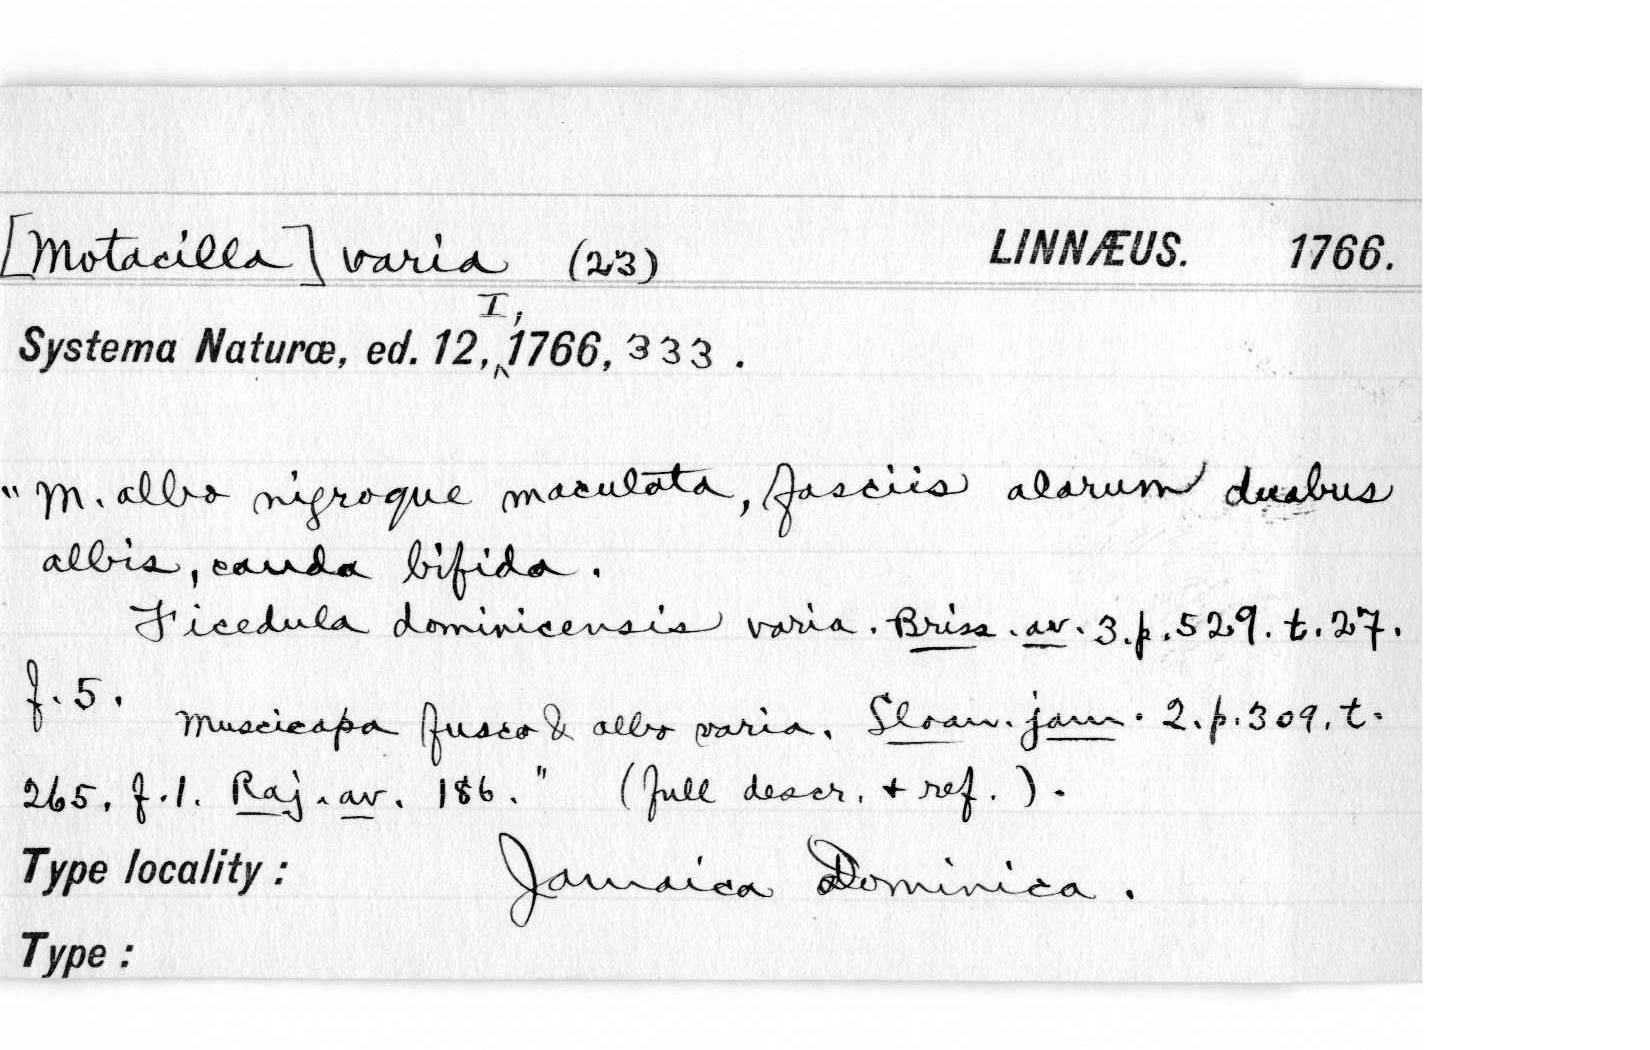 [Motacilla] varia (23) LINNÆUS. 1766.
Systema Naturæ, ed. 12, I, 1766, 333.
"M. albo nigroque maculata, fasciis alarum duabus
albis, cauda bifida.
Ficedula dominicensis varia. Briss. av. 3. p. 529. t. 27.
f. 5.
Muscicapa fusco & albo varia. Sloan. jam. 2. p. 309. t.
265. f. 1. Raj. av. 186." (full descr. + ref.).
Type locality: Jamaica Dominica.
Type: